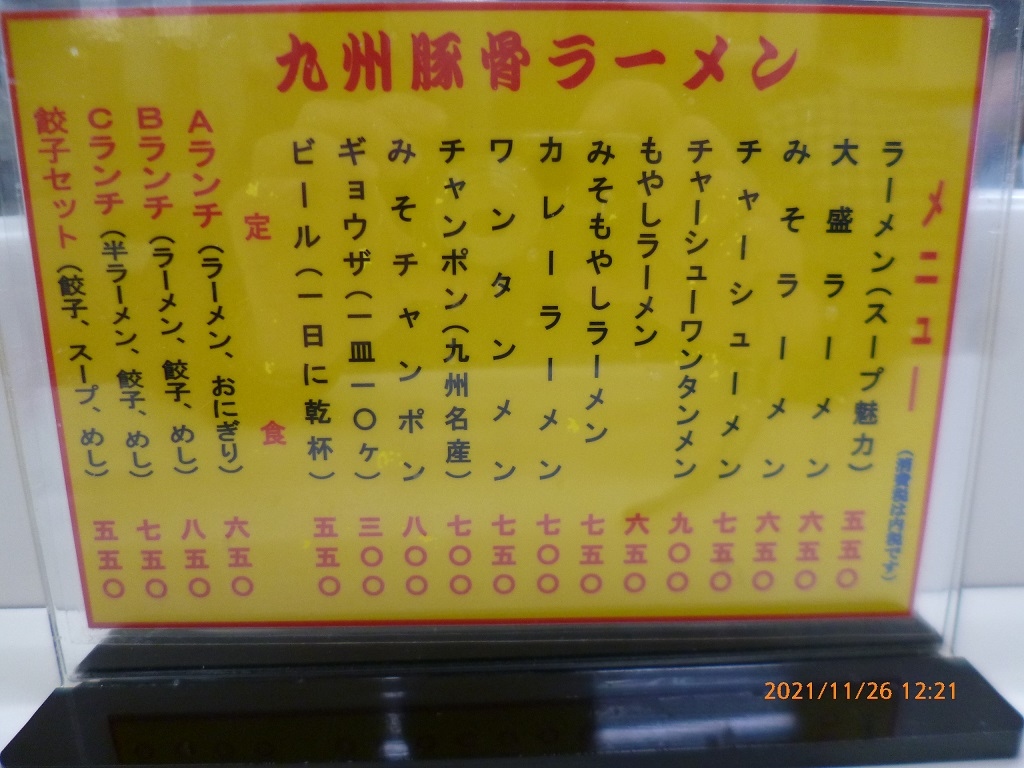 九州豚骨ラーメン
メニュー
(消費税は内税です)
ラーメン(スープ魅力) 五五〇
大盛ラーメン 六五〇
みそラーメン 六五〇
チャーシューメン 七五〇
チャーシューワンタンメン 九〇〇
もやしラーメン 六五〇
みそもやしラーメン 七五〇
カレーラーメン 七〇〇
ワンタンメン 七五〇
チャンポン(九州名産) 七〇〇
みそチャンポン 八〇〇
ギョウザ(一皿一〇ヶ) 三〇〇
ビール(一日に乾杯) 五五〇
定食
Aランチ(ラーメン、おにぎり) 六五〇
Bランチ(ラーメン、餃子、めし) 八五〇
Cランチ(半ラーメン、餃子、めし) 七五〇
餃子セット(餃子、スープ、めし) 五五〇
2021/11/26 12:21